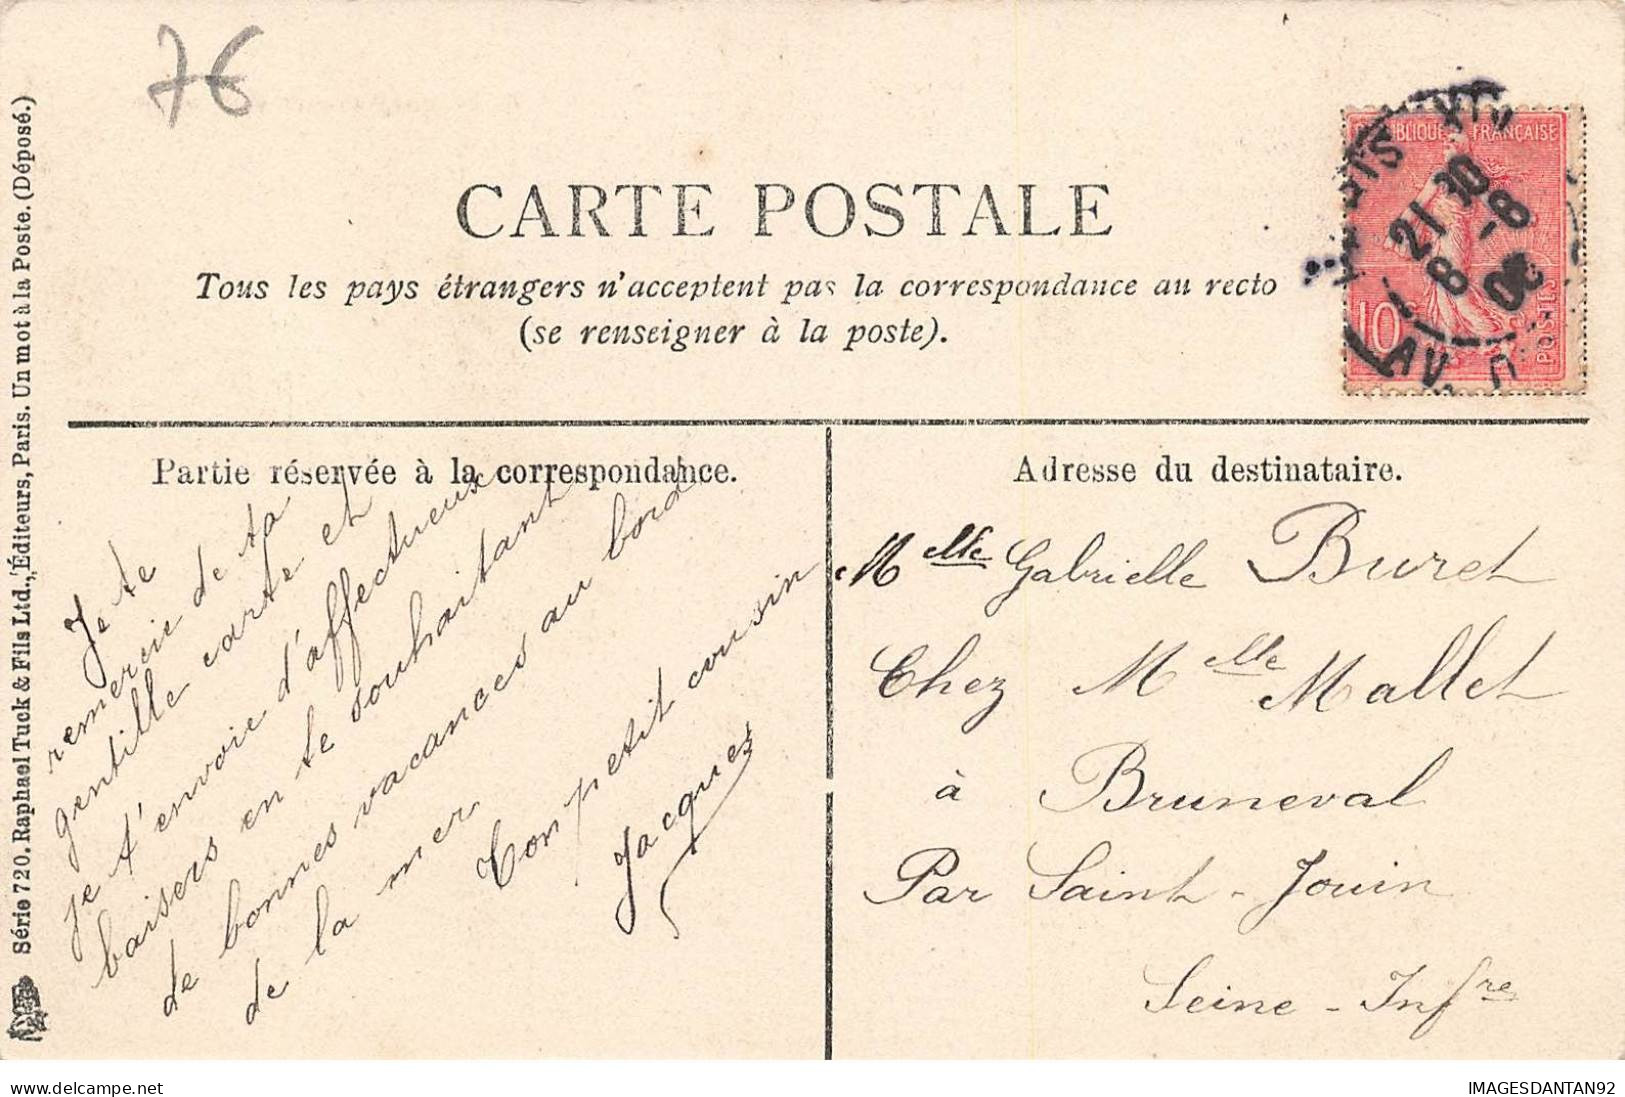 7€
CARTE POSTALE
Tous les pays étrangers n'acceptent pas la correspondance au recto
(se renseigner à la poste).
RÉPUBLIQUE FRANÇAISE
10
POSTES
PARIS XIV
21 30
8 - 8
06
AV. D
Série 720. Raphael Tuck & Fils Ltd., Éditeurs, Paris. Un mot à la Poste. (Déposé.)
Partie réservée à la correspondance.
Je te
remercie de ta
gentille carte et
je t'envoie d'affectueux
baisers en te souhaitant
de bonnes vacances au bord
de la mer
Ton petit cousin
Jacques
Adresse du destinataire.
Mlle Gabrielle Buret
Chez Mlle Mallet
à Bruneval
Par Saint-Jouin
Seine-Infre
www.delcampe.net
IMAGESDANTAN92